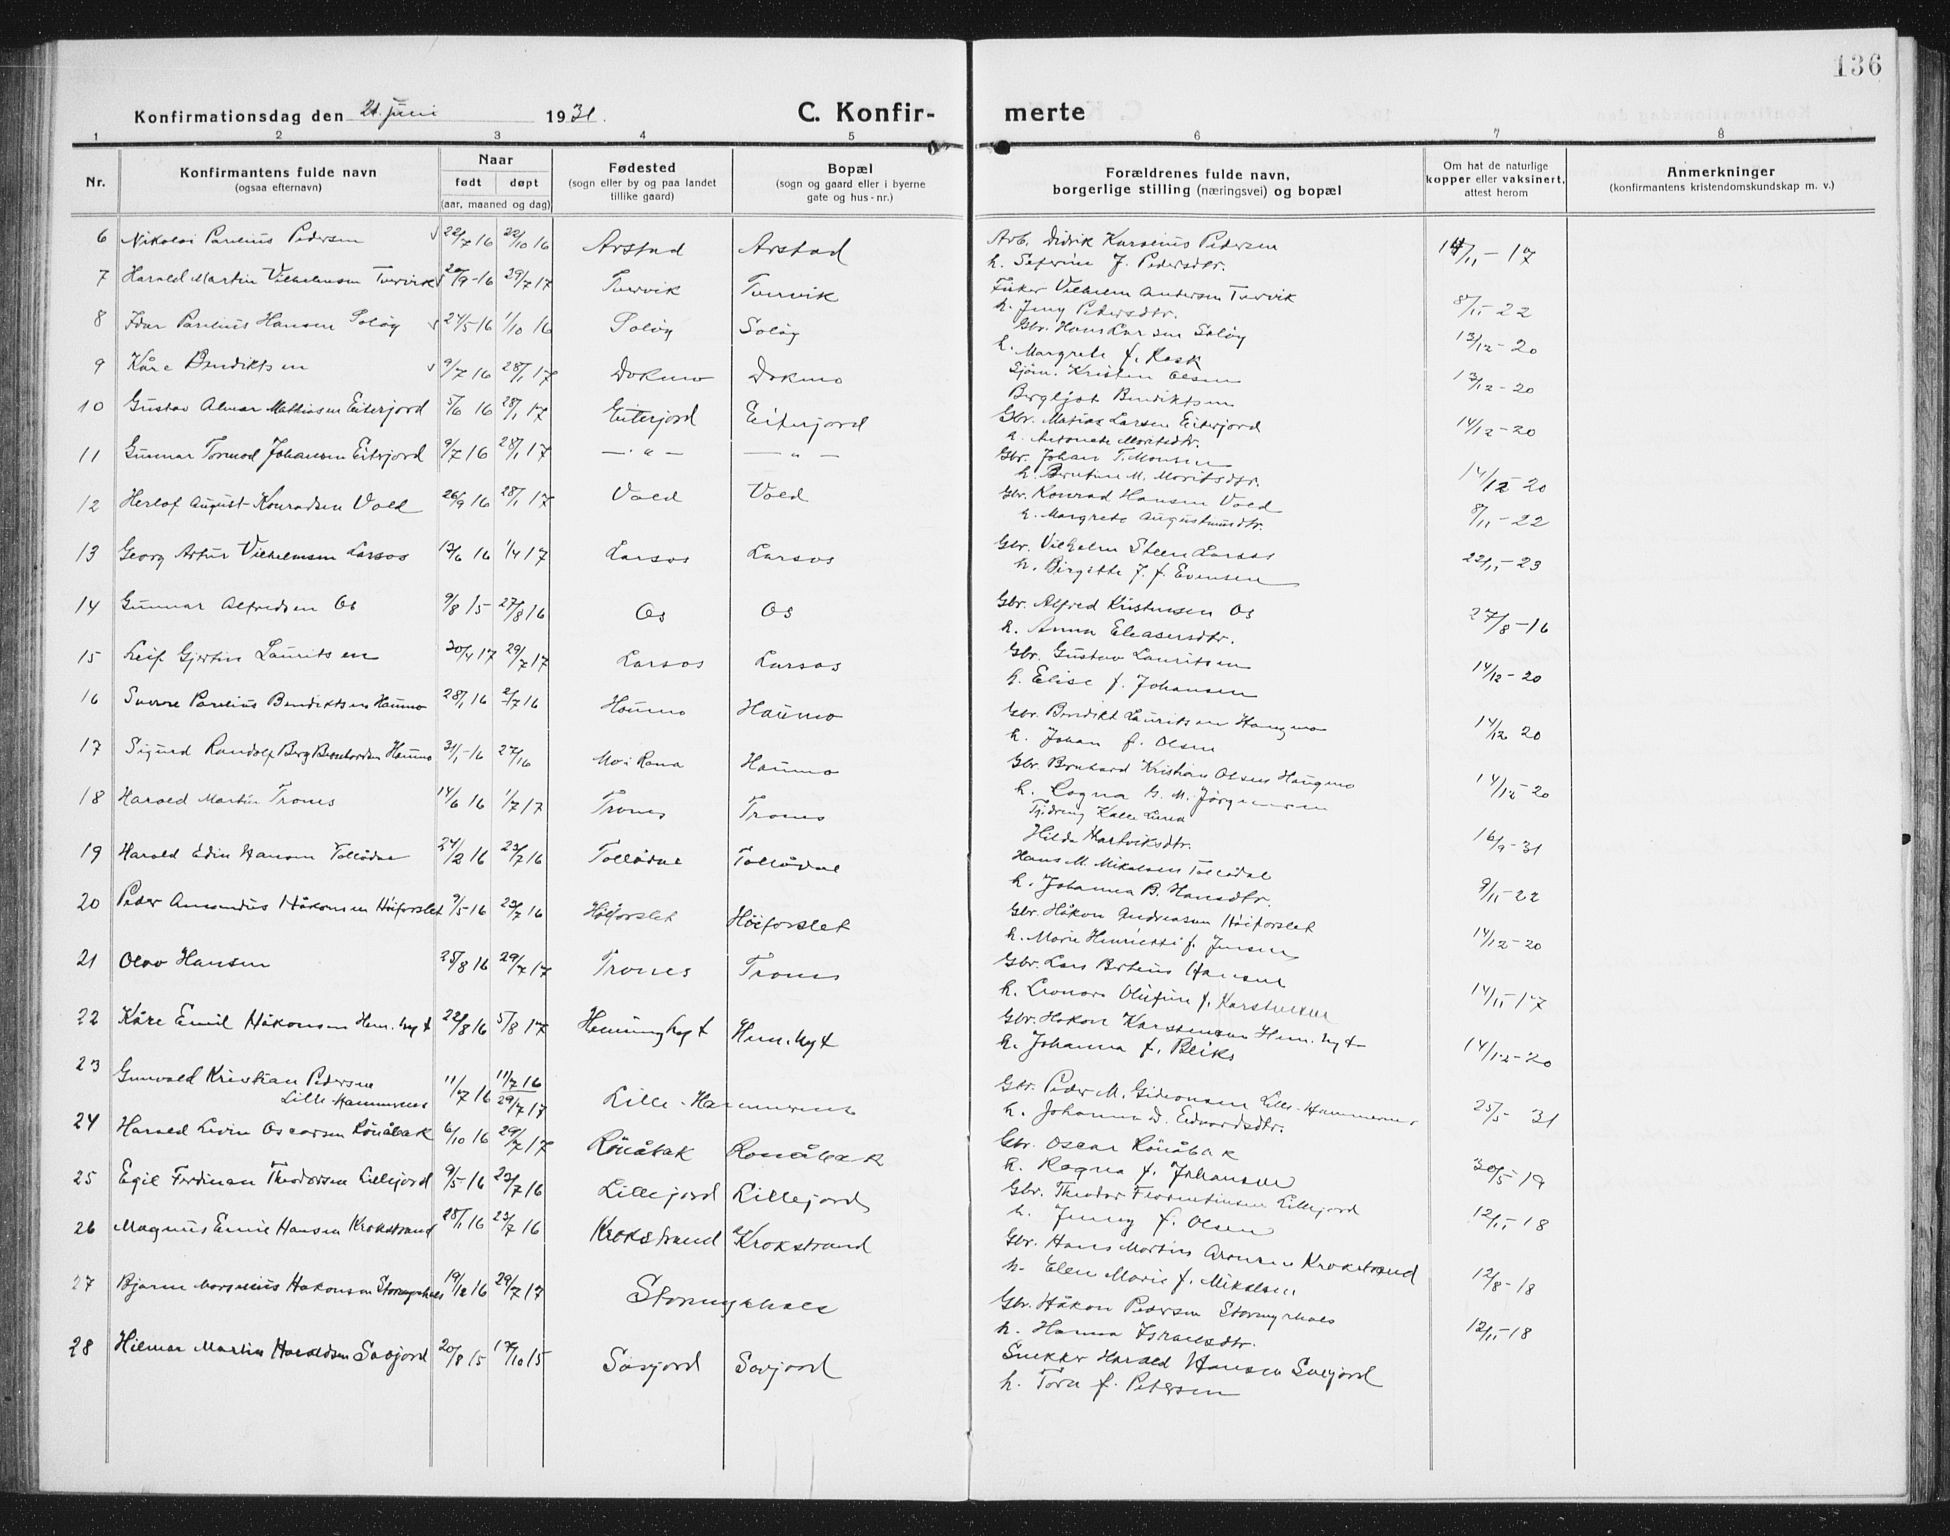 136
Konfirmationsdag den 21. Juni 1931.
C. Konfir-
merte
1 2 3 4 5 6 7 8
Nr.
Konfirmantens fulde navn
(ogsaa efternavn)
Naar
født døpt
(aar, maaned og dag)
Fødested
(sogn eller by og paa landet
tillike gaard)
Bopæl
(sogn og gaard eller i byerne
gate og hus-nr.)
Forældrenes fulde navn,
borgerlige stilling (næringsvei) og bopæl
Om hat de naturlige
kopper eller vaksinert,
attest herom
Anmerkninger
(konfirmantens kristendomskundskap m. v.)
6 Nikolai Parelius Pedersen 22/7 16 22/10 16 Arstad Arstad
Arb. Didrik Kornelius Pedersen
h. Seferine J. Pedersdtr.
14/11-17
7 Harald Martin Vilhelmsen Tvervik 20/9-16 29/7 17 Tvervik Tvervik
Fisker Vilhelm Andersen Tvervik
h. Jeny Petersdtr.
8/11-22
8 Idar Parelius Hansen Soløy 24/5-16 1/10 16 Soløy Soløy
Gbr. Hans Larsen Soløy
h. Margrete f. Rask
13/12-20
9 Kåre Bendiktsen 9/7 16 28/1 17 Dokmo Dokmo
Sjøm. Kristen Olsen
Bergljot Bendiktsen
13/12-20
10 Gustav Almar Mathiasen Eiterjord 5/6 16 28/1 17 Eiterjord Eiterjord
Gbr. Matias Larsen Eiterjord
h. Antonete Moritsdtr.
14/12-20
11 Gunnar Tormod Johansen Eiterjord 9/7 16 28/1 17 — " — — " —
Gbr. Johan T. Monsen
h. Berntine M. Moritsdtr.
14/12-20
12 Herlof August Konradsen Vold 26/9 16 28/1 17 Vold Vold
Gbr. Konrad Hansen Vold
h. Margrete Augustinusdtr.
8/11-22
13 Georg Artur Vilhelmsen Larsos 13/6 16 1/4 17 Larsos Larsos
Gbr. Vilhelm Steen Larsos
h. Birgitte J. f. Evensen
22/11-23
14 Gunnar Alfredsen Os 9/8 15 27/8 16 Os Os
Gbr. Alfred Kristensen Os
h. Anna Eleasersdtr.
27/8-16
15 Leif Gjertin Lauritsen 30/4 17 29/7 17 Larsos Larsos
Gbr. Gustav Lauritsen
h. Elise f. Johansen
14/12-20
16 Sverre Parelius Bendiktsen Haumo 28/1 16 2/7 16 Haumo Haumo
Gbr. Bendikt Lauritsen Haugmo
h. Johan f. Olsen
14/12 20
17 Sigurd Randolf Berg Bernhardsen Haumo 31/1-16 27/16 Mo i Rana Haumo
Gbr. Bernhard Kristian Olsen Haugmo
h. Ragna G. M. Jørgensen
14/12-20
18 Harald Martin Trones 14/6 16 1/7 17 Trones Trones
Kalle Lund
Hilda Hartviksdtr.
16/9-31
19 Harald Edin Hansen Tollådal 24/2 16 23/7 16 Tollådal Tollådal
Hans M. Mikalsen Tollådal
h. Johanna B. Hansdtr.
9/11-22
20 Peder Amandus Håkonsen Höiforslet 9/5-16 23/7 16 Höiforslet Höiforslet
Gbr. Håkon Andreasen Höiforslet
h. Marie Henriette f. Jensen
14/12-20
21 Olav Hansen 25/8 16 29/7 17 Trones Trones
Gbr. Lars Berteus Hansen
h. Leonora Olufine f. Karstensen
14/11-17
22 Kåre Emil Håkonsen Hem.hyt 22/8 16 5/8 17 Hemminghyt Hem.hyt
Gbr. Hakon Karstensen Hem.hyt
h. Johanna f. Beiks
14/12-20
23 Gunvald Kristian Pedersen
Lille Hammernes
11/7 16 11/7 16
29/7 17
Lille-Hammernes
Gbr. Peder M. Gideonsen Lille-Hammernes
h. Johanna D. Edvardsdtr.
25/5-31
24 Harald Levin Oscarsen Rönåbak 6/10 16 29/7 17 Rönåbak Ronåbak
Gbr. Oscar Rönåbak
h. Ragna f. Johansen
30/5-19
25 Egil Ferdinan Theodorsen Lillejord 9/5 16 23/7 16 Lillejord Lillejord
Gbr. Theodor Florentinsen Lillejord
h. Jenny f. Olsen
12/11-18
26 Magnus Emil Hansen Krokstrand 28/1 16 23/7 16 Krokstrand Krokstrand
Gbr. Hans Martin Aronsen Krokstrand
h. Elen Marie f. Mikalsen
12/8-18
27 Bjarne Margenius Hakonsen Stormyrhals 19/12 16 29/7 17 Stormyrhals
Gbr. Håkon Pedersen Stormyrhals
h. Hanna Israelsdtr.
12/11-18
28 Hilmar Martin Haraldsen Savjord 20/8 15 17/10 15 Savjord Savjord
Snekker Harald Hansen Savjord
h. Tora f. Petersen